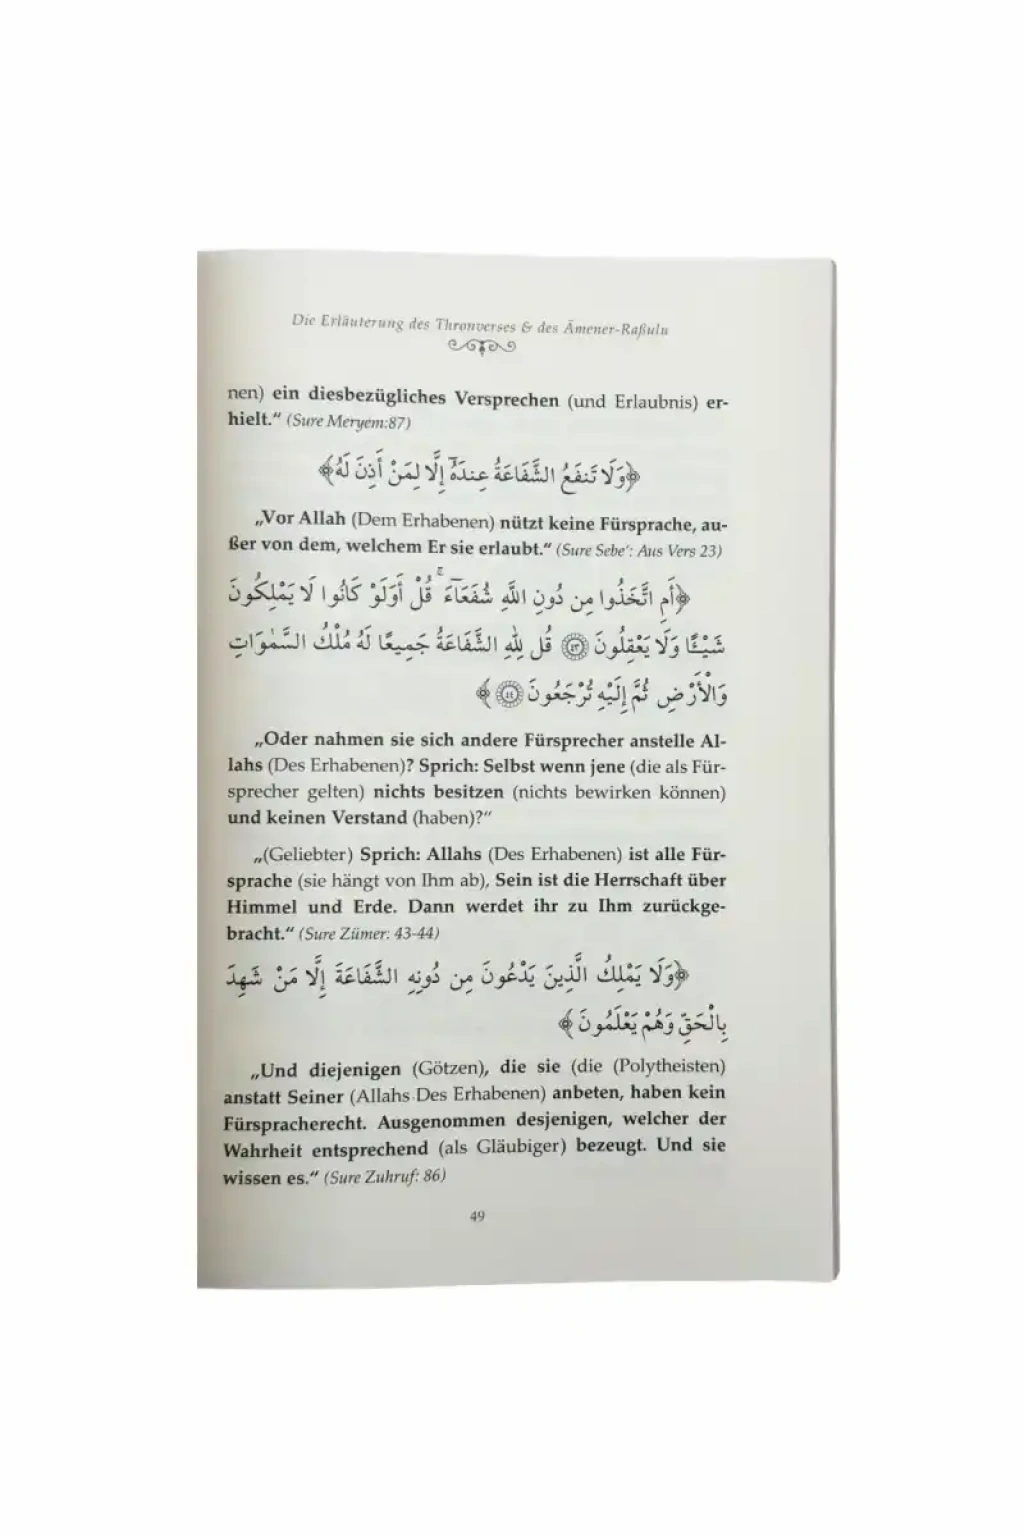 Die Erläuterung des Thronverses & des Âmener-Raßulu
nen) ein diesbezügliches Versprechen (und Erlaubnis) er-
hielt.“ (Sure Meryem:87)
﴿وَلَا تَنفَعُ الشَّفَاعَةُ عِندَهُٓ إِلَّا لِمَنْ أَذِنَ لَهُ﴾
„Vor Allah (Dem Erhabenen) nützt keine Fürsprache, au-
ßer von dem, welchem Er sie erlaubt.“ (Sure Sebe’: Aus Vers 23)
﴿أَمِ اتَّخَذُوا مِن دُونِ اللَّهِ شُفَعَآءَ ۚ قُلْ أَوَلَوْ كَانُوا لَا يَمْلِكُونَ
شَيْـًٔا وَلَا يَعْقِلُونَ ٤٣ قُل لِلَّهِ الشَّفَاعَةُ جَمِيعًا لَهُ مُلْكُ السَّمٰوَاتِ
وَالْأَرْضِ ثُمَّ إِلَيْهِ تُرْجَعُونَ ٤٤ ﴾
„Oder nahmen sie sich andere Fürsprecher anstelle Al-
lahs (Des Erhabenen)? Sprich: Selbst wenn jene (die als Für-
sprecher gelten) nichts besitzen (nichts bewirken können)
und keinen Verstand (haben)?“
„(Geliebter) Sprich: Allahs (Des Erhabenen) ist alle Für-
sprache (sie hängt von Ihm ab), Sein ist die Herrschaft über
Himmel und Erde. Dann werdet ihr zu Ihm zurückge-
bracht.“ (Sure Zümer: 43-44)
﴿وَلَا يَمْلِكُ الَّذِينَ يَدْعُونَ مِن دُونِهِ الشَّفَاعَةَ إِلَّا مَنْ شَهِدَ
بِالْحَقِّ وَهُمْ يَعْلَمُونَ ﴾
„Und diejenigen (Götzen), die sie (die (Polytheisten)
anstatt Seiner (Allahs Des Erhabenen) anbeten, haben kein
Fürspracherecht. Ausgenommen desjenigen, welcher der
Wahrheit entsprechend (als Gläubiger) bezeugt. Und sie
wissen es.“ (Sure Zuhruf: 86)
49